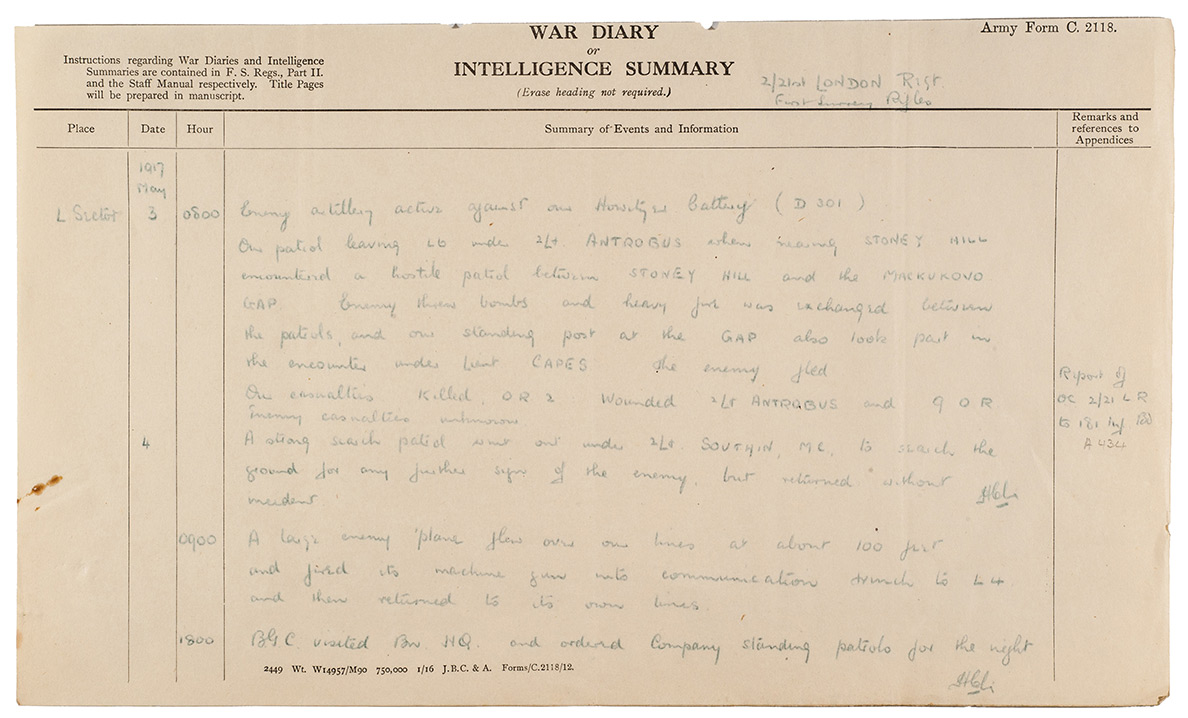 WAR DIARY
Army Form C. 2118.
or
INTELLIGENCE SUMMARY
(Erase heading not required.)
Instructions regarding War Diaries and Intelligence
Summaries are contained in F. S. Regs., Part II.
and the Staff Manual respectively. Title Pages
will be prepared in manuscript.
2/21st LONDON Rigt
First Surrey Rifles
Place
Date
Hour
Summary of Events and Information
Remarks and
references to
Appendices
1917
May
L Sector 3 0800 Enemy artillery active against our Howitzer battery (D 301)
Our patrol leaving L6 under 2/Lt. ANTROBUS when nearing STONEY HILL
encountered a hostile patrol between STONEY HILL and the MACKUKOVO
GAP. Enemy threw bombs and heavy fire was exchanged between
the patrols, and our standing post at the GAP also took part in
the encounter under Lieut CAPES the enemy fled
Our casualties Killed, OR 2 Wounded 2/Lt ANTROBUS and 9 OR
Enemy casualties unknown.
Report of
OC 2/21 L R
to 181 Inf Bde
A 434
4 A strong search patrol went out under 2/Lt SOUTHIN, MC, to search the
ground for any further sign of the enemy, but returned without
incident.
0900 A large enemy 'plane flew over our lines at about 100 feet
and fired its machine gun into communication trench to L4
and then returned to its own lines.
1800 BGC visited Bn HQ. and ordered Company standing patrols for the night
2449 Wt. W14957/M90 750,000 1/16 J.B.C. & A. Forms/C.2118/12.